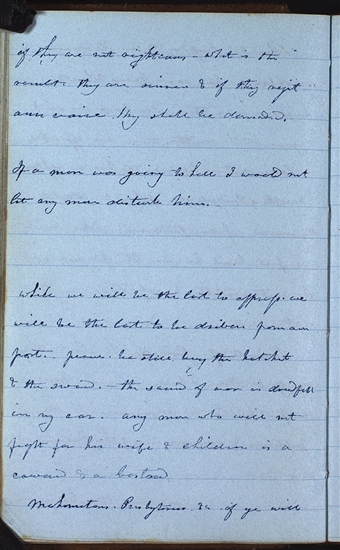 if they are not righteous - what is the
result. they are sinners & if they reject
our voice they shall be damned.
If a man was going to hell I would not
let any man disturb him.
while we will be the last to oppress. we
will be the last to be driven from our
post. peace. be still bury the hatchet
& the sword. - the sound of war is dredfull
in my ear. any man who will not
fight for his wife & children is a
coward & a bastard
Mahometans. Presbyterians &c. if ye will